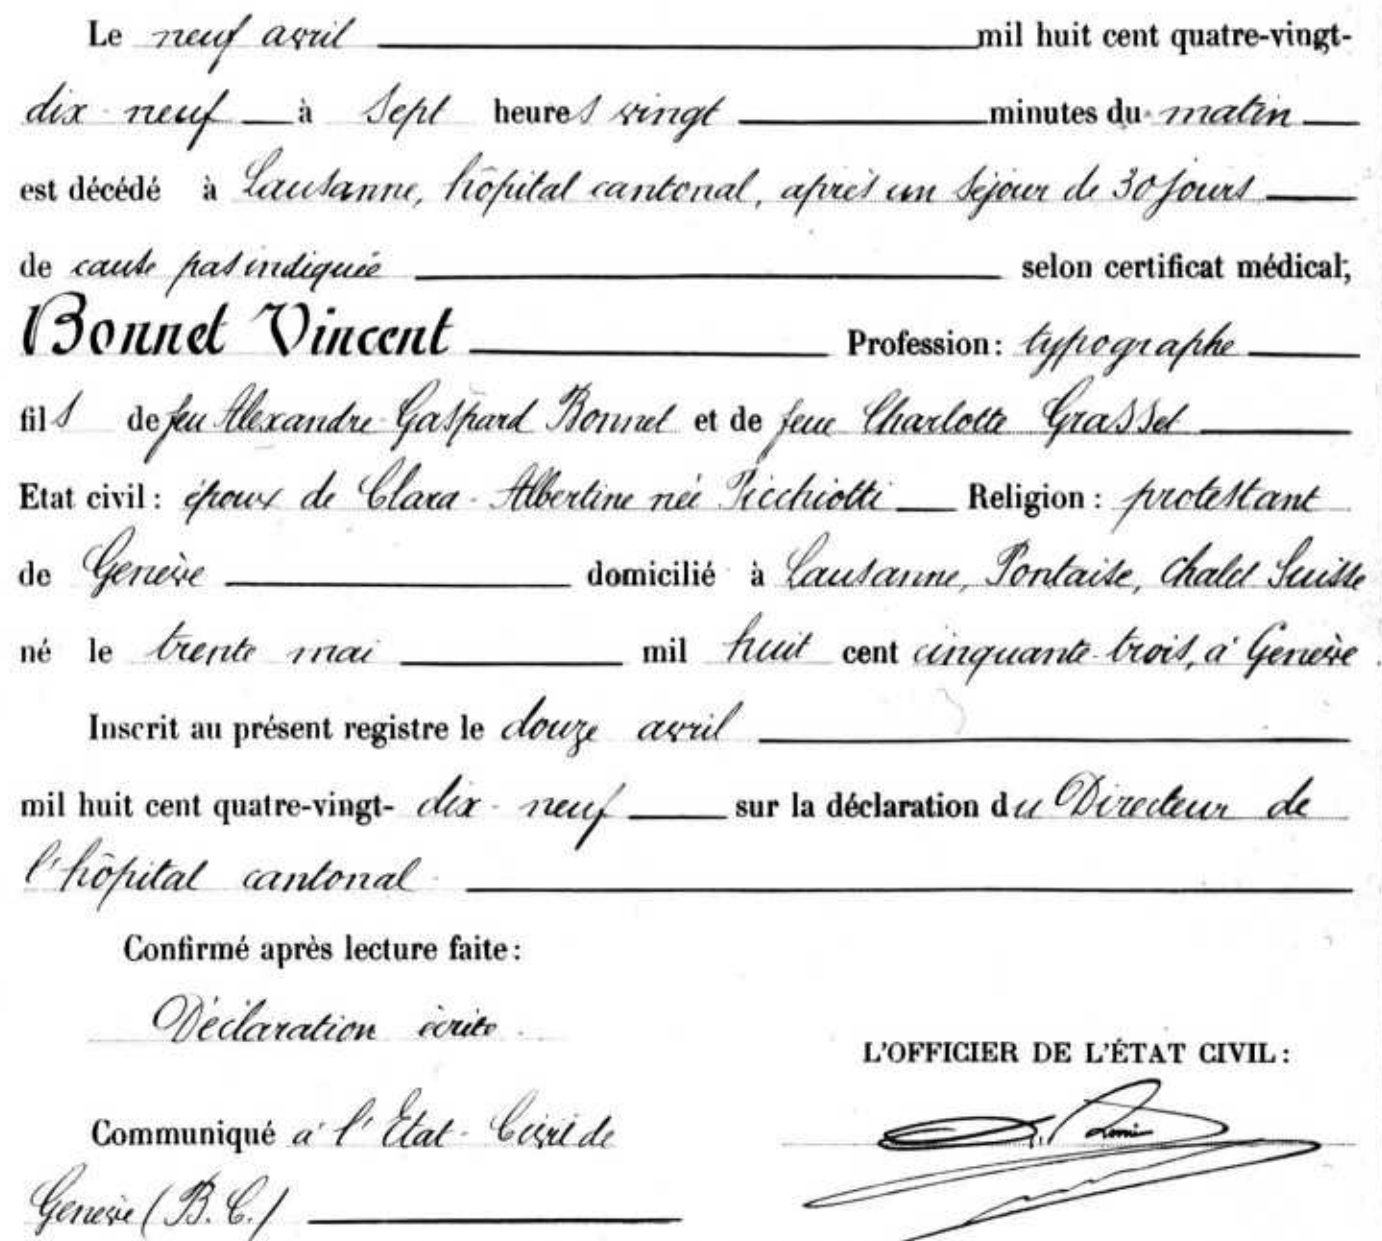 Le neuf avril mil huit cent quatre-vingt-
dix-neuf à sept heures vingt minutes du matin
est décédé à Lausanne, hôpital cantonal, après un séjour de 30 jours
de cause pas indiquée selon certificat médical,
Bonnet Vincent Profession: typographe
fils de feu Alexandre-Gaspard Bonnet et de feue Charlotte Grasset
Etat civil: époux de Clara-Albertine née Picchiotti Religion: protestant
de Genève domicilié à Lausanne, Pontaise, chalet Suisse
né le trente mai mil huit cent cinquante-trois, à Genève
Inscrit au présent registre le douze avril
mil huit cent quatre-vingt- dix-neuf sur la déclaration du Directeur de
l'hôpital cantonal
Confirmé après lecture faite:
Déclaration écrite.
L'OFFICIER DE L'ÉTAT CIVIL:
Communiqué à l'Etat-Civil de
Genève (B.C.)